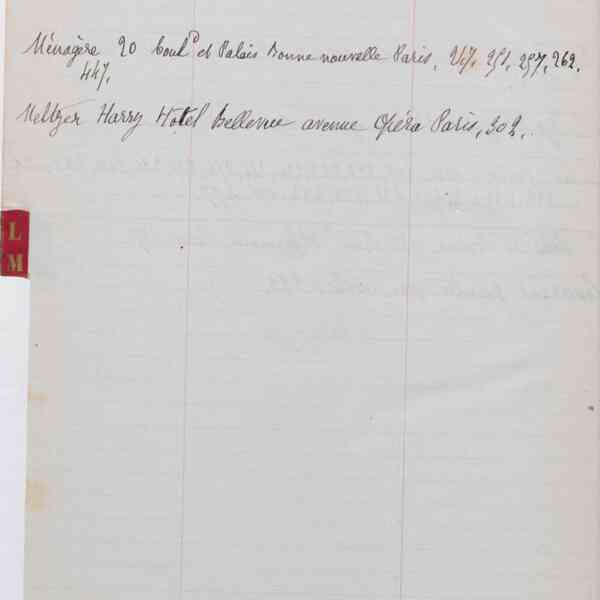 Ménagère 20 boulᵈ et Palais Bonne nouvelle Paris, 247, 251, 257, 262.
447.
Meltzer Harry Hotel Bellevue avenue Opéra Paris, 302.
L
M